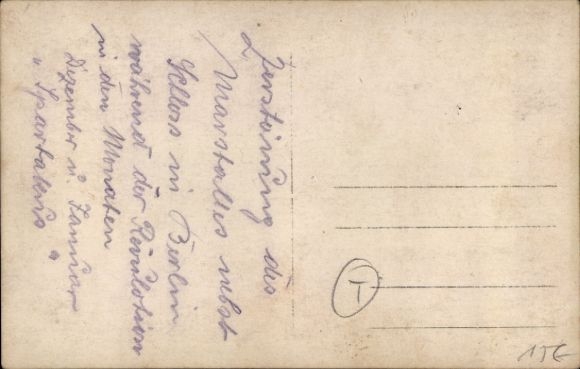 Zerstörung des
Marstalles nebst
Schloss in Berlin
während der Revulotion
in den Monaten
Dezember u. Januar
"Spartakus"
T
15€